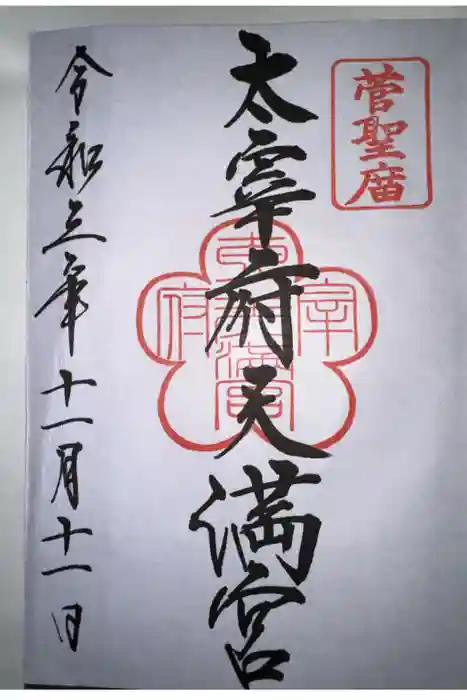 菅聖庿
太宰府天満宮
太宰府天満宮
令和三年十一月十一日